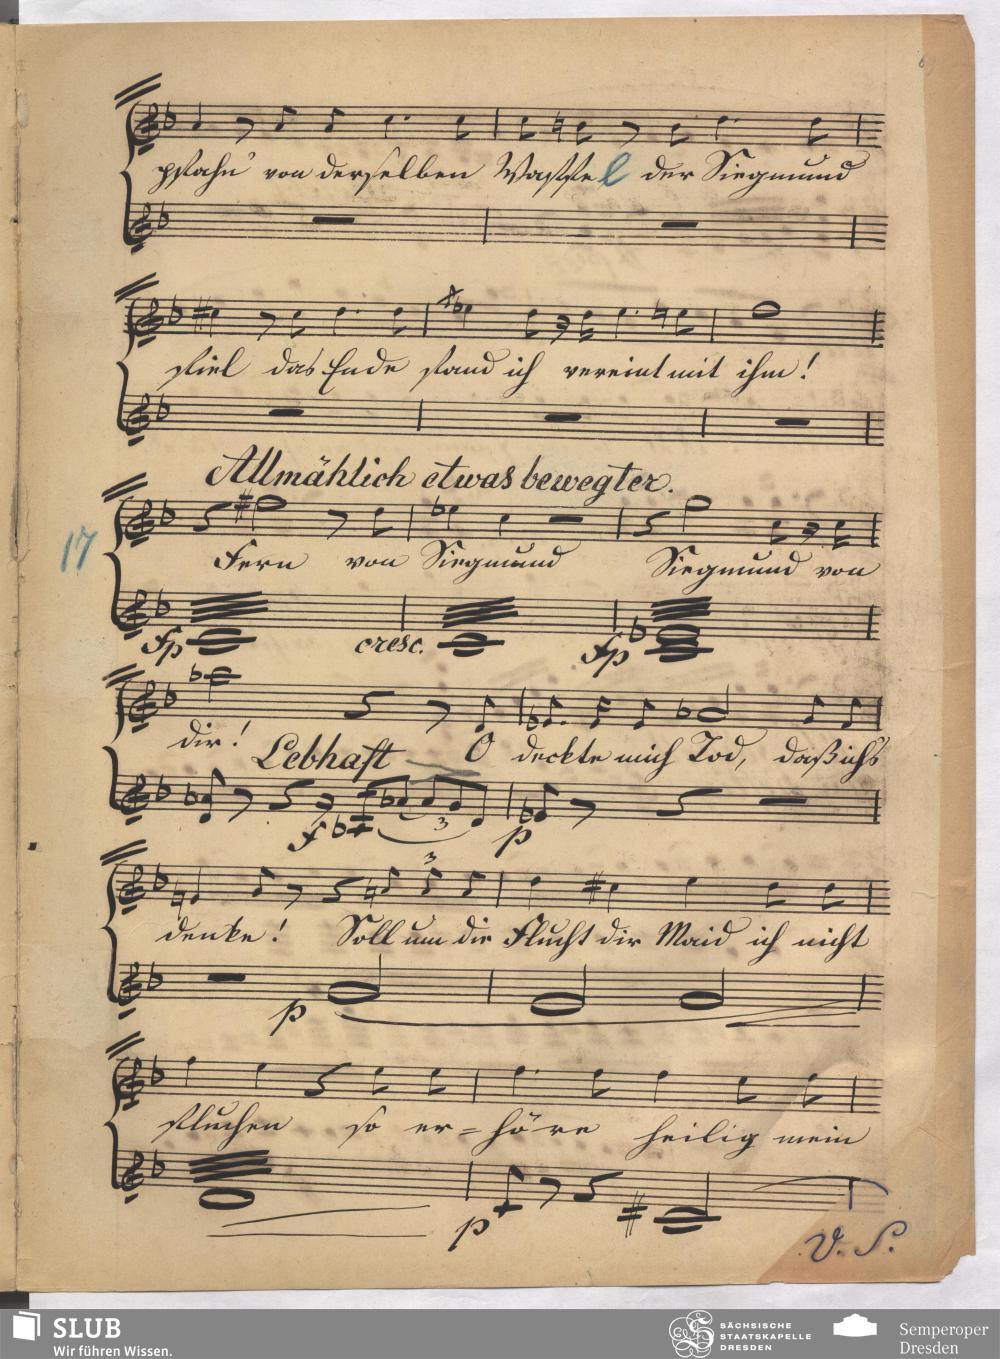 69
pflahn von derselben Waffe l der Siegmund
fiel das Ende fand ich vereint mit ihm!
Allmählich etwas bewegter.
17
Fern von Siegmund Siegmund von
fp cresc. fp
dir! O deckte mich Tod, daß ich's
Lebhaft
f 3 p
3
denke! Soll um die Flucht dir Maid ich nicht
p
fluchen so er=höre heilig mein
p
V. S.
SLUB
Wir führen Wissen.
SÄCHSISCHE
STAATSKAPELLE
DRESDEN
Semperoper
Dresden